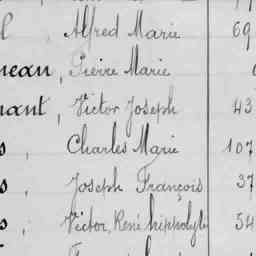 l Alfred Marie 69
neau, Pierre Marie
nant, Victor Joseph 43
s Charles Marie 107
s, Joseph François 37
s, Victor, René hippolyte 54